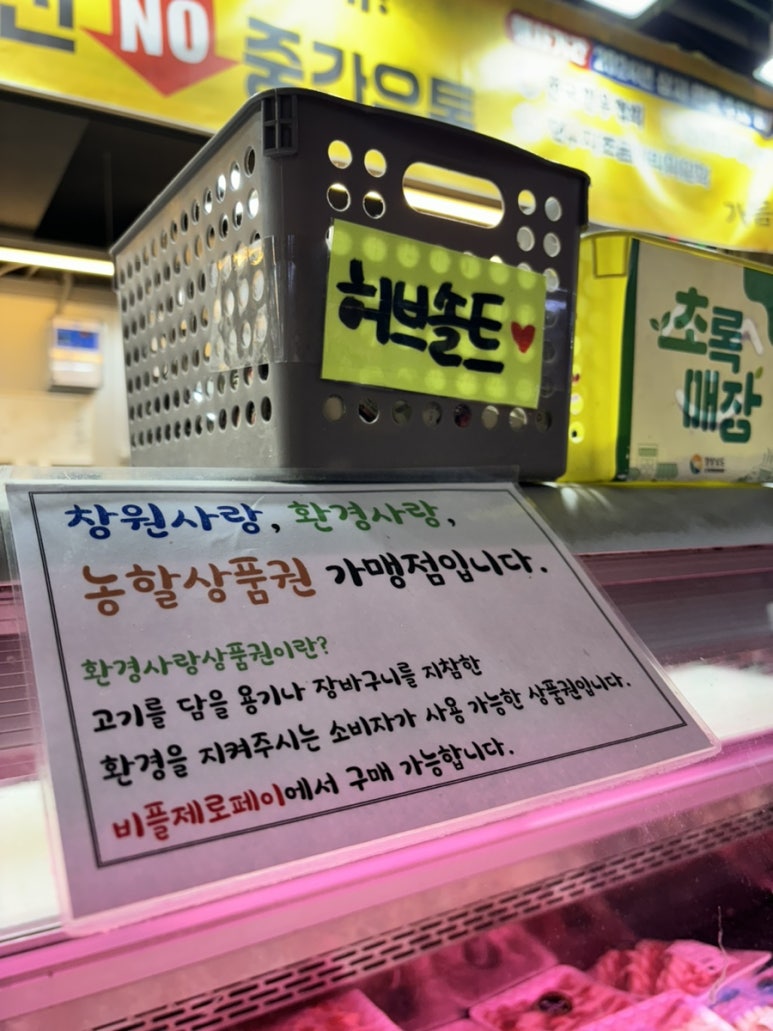 NO
중간으로
허브솔트
초록
매장
창원사랑, 환경사랑,
농할상품권 가맹점입니다.
환경사랑상품권이란?
고기를 담을 용기나 장바구니를 지참한
환경을 지켜주시는 소비자가 사용 가능한 상품권입니다.
비플제로페이에서 구매 가능합니다.